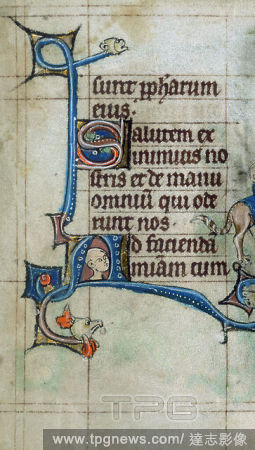 sunt ppharum
eius.
Salutem ex
inimicis no
stris et de manu
omniũ qui ode
runt nos.
Ad faciendã
miãm cum
TPG
www.tpgnews.com/達志影像